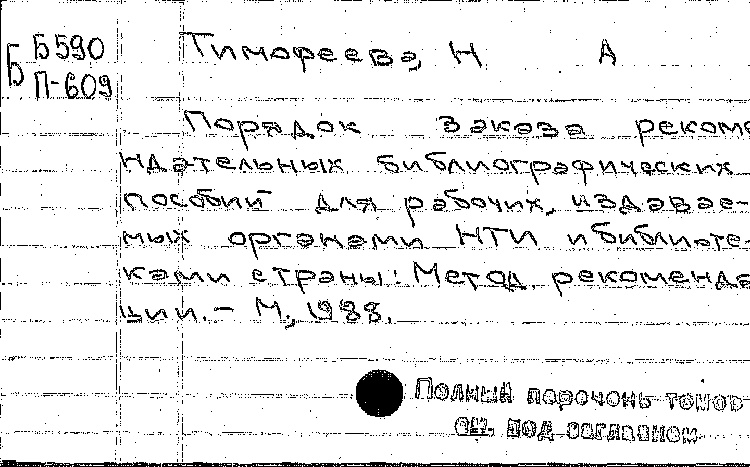 Б Б590
П-609
Тимофеева, Н А
Порядок заказа рекоме
ндательных библиографических
пособий для рабочих, издавае-
мых органами НТИ и библиоте-
ками страны: Метод. рекоменда
ции. – М., 1988.
Полный перечень томов
см. под заглавием